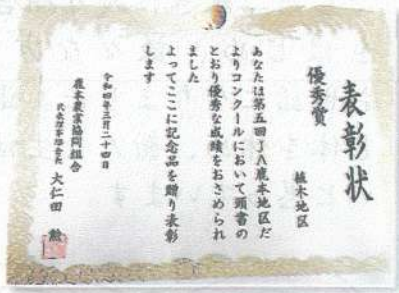 表彰状
優秀賞
植木地区
あなたは第五回JA鹿本地区だ
よりコンクールにおいて頭書の
とおり優秀な成績をおさめられ
ました
よってここに記念品を贈り表彰
します
令和四年三月二十四日
鹿本農業協同組合
代表理事組合長 大仁田 勲